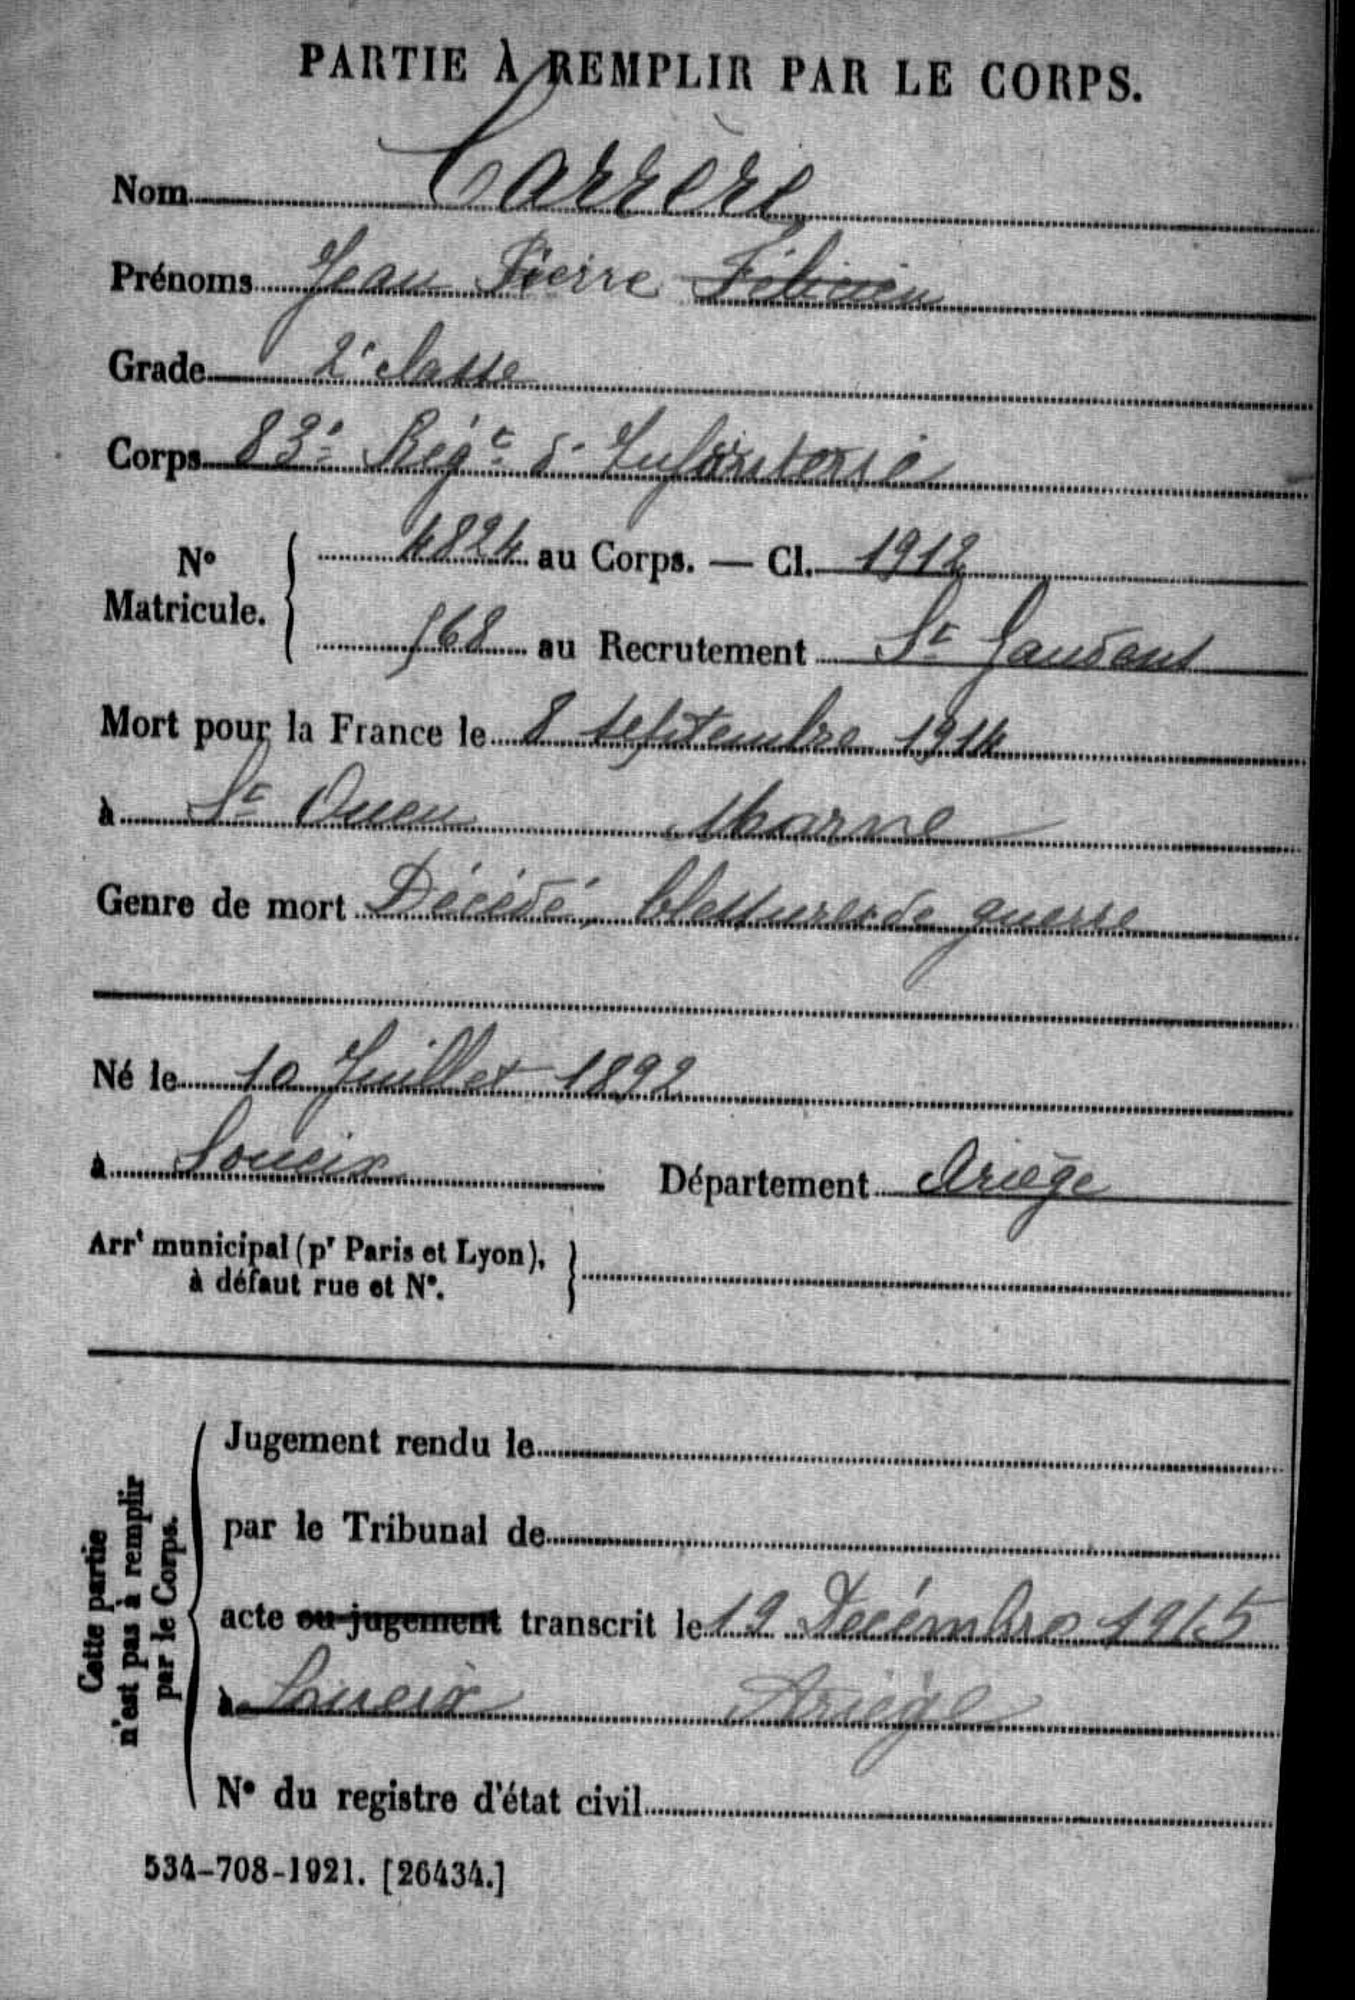 PARTIE À REMPLIR PAR LE CORPS.
Nom Carrère
Prénoms Jean Pierre Félicien
Grade 2e classe
Corps 83e Régt d'Infanterie
No Matricule. 4824 au Corps. — Cl. 1912
568 au Recrutement St Gaudens
Mort pour la France le 8 septembre 1914
à St Ouen Marne
Genre de mort Décédé, blessures de guerre
Né le 10 Juillet 1892
à Soueix Département Ariège
Arrt municipal (pr Paris et Lyon),
à défaut rue et No.
Cette partie
n'est pas à remplir
par le Corps.
Jugement rendu le
par le Tribunal de
acte ou jugement transcrit le 19 Décembre 1915
à Soueix Ariège
No du registre d'état civil
534-708-1921. [26434.]